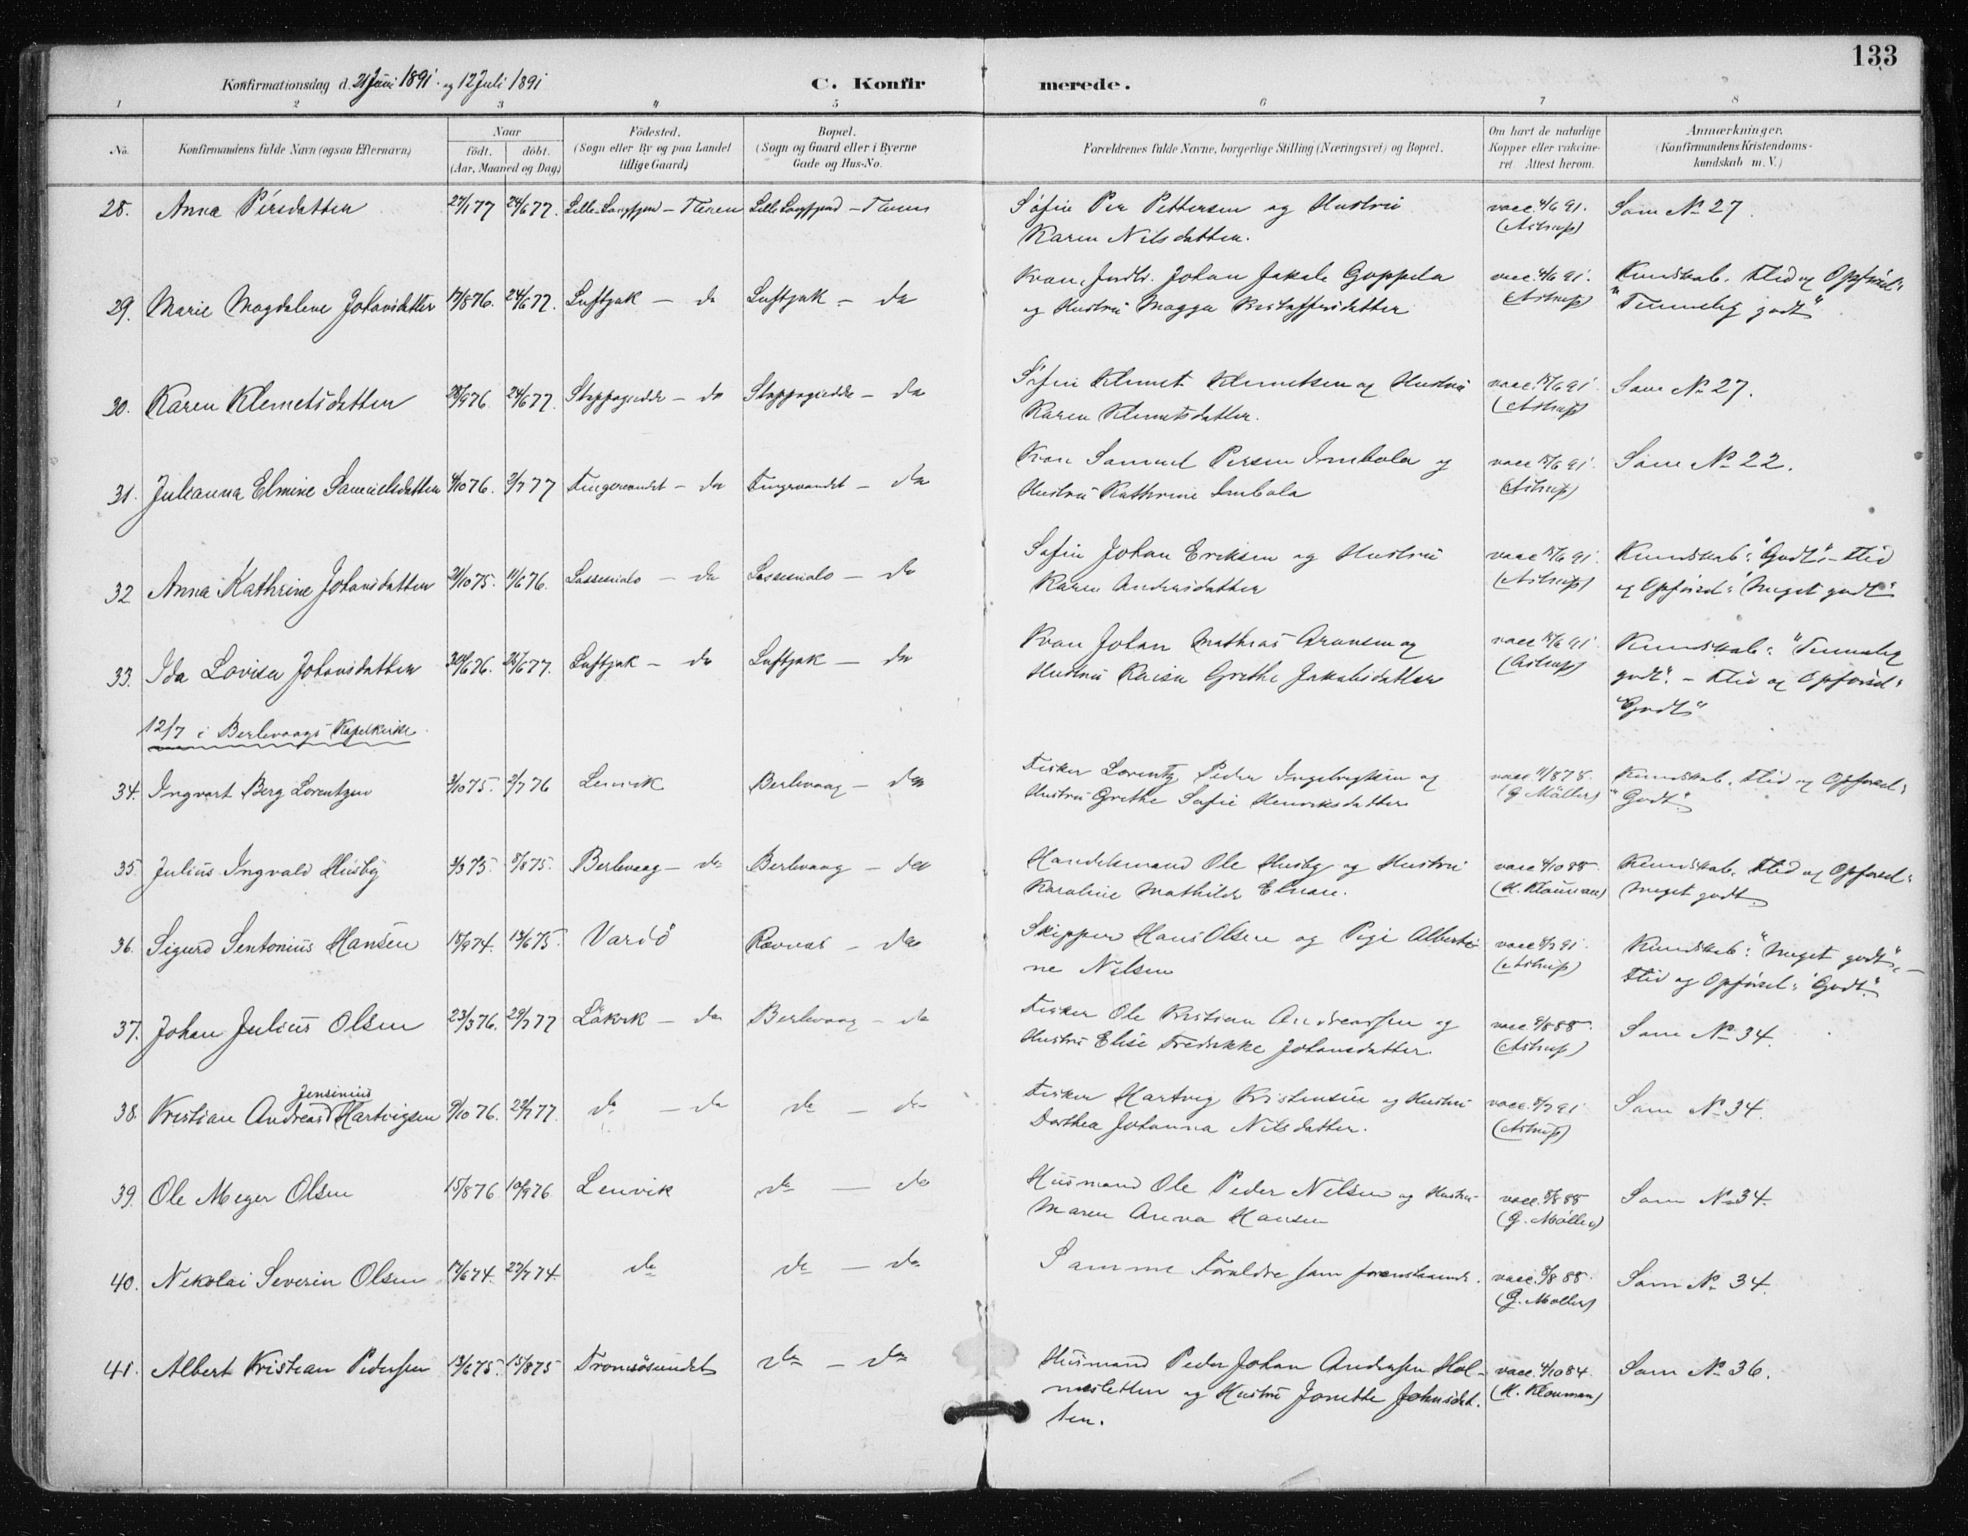 133
Konfirmationsdag d. 21 Juni 1891 og 12 Juli 1891
C. Konfirmerede.
1 2 3 4 5 6 7 8
No. Konfirmandens fulde Navn (ogsaa Efternavn)
Naar
födt. döbt.
(Aar, Maaned og Dag)
Födested.
(Sogn eller By og paa Landet
tillige Gaard)
Bopæl.
(Sogn og Gaard eller i Byerne
Gade og Hus-No.
Forældrenes fulde Navne, borgerlige Stilling (Næringsvei) og Bopæl.
Om havt de naturlige
Kopper eller vakcine-
ret. Attest herom.
Anmærkninger.
(Konfirmandens Kristendoms-
kundskab m. V.)
28. Anna Persdatter 27/1 77 24/6 77. Lille Langfjord – Tanen Lille Langfjord – Tanen Söfin Per Pettersen og Hustru vacc. 4/6 91. Som No 27.
Karen Nilsdatter. (Astrup)
29. Marie Magdalene Johansdatter 17/8 76. 24/6 77. Luftjok – do Luftjok – do Kvæn, Johan Jakob Goppela vacc. 4/6 91. Kundskab, Flid og Opförsel:
og Hustru Magga (Astrup) "Temmelig godt"
30. Karen Klemetsdatter 28/9 76. 24/6 77. – do – do Söfin Klemet Klemetsen og Hustru vacc. 15/6 91. Som No 27.
Karen Klemetsdatter. (Astrup)
31. Julianna Elmine Samuelsdatter 4/10 76. 2/7 77 – do – do Kvæn Samuel Persen Imbola og vacc. 15/6 91. Som No 22.
Hustru Kathrine Imbola (Astrup)
32 Anna Kathrine Johansdatter 31/10 75. 11/6 76. – do – do Söfin Johan Eriksen og Hustru vacc. 15/6 91. Kundskab: "Godt" – Flid
Karen Andersdatter (Astrup) og Opförsel: "Meget godt"
33. Ida Lovisa Johansdatter 30/6 76. 25/6 77. Luftjok – do Luftjok – do Kvæn Johan Mathias Aronsen og vacc. 15/6 91. Kundskab: "Temmelig
Hustru Kaisa Grethe Jakobsdatter (Astrup) godt". – Flid og Opförsel:
"Godt"
12/7 i Berlevaags Kapelkirke
34. Ingvart Berg Lorentzen 3/10 75. 2/7 76 Lenvik Berlevaag – do Fisker Lorentz Peder Ingebrigtsen og vacc. 11/8 78. Kundskab, Flid og Opförsel:
Hustru Grethe Sofie Henriksdatter (G. Möller) "Godt".
35. Julius Ingvald Husby 3/3 75. 8/8 75. Berlevaag – do Berlevaag – do Handelsmand Ole Husby og Hustru vacc. 4/10 88. Kundskab, Flid og Opförsel:
Karoline Mathilde (H. Klouman) Meget godt.
36. Sigurd Sentonius Hansen 18/9 74. 13/6 75. Vardö Rævnæs – do Skipper Hans Olsen og Pige Alberti- vacc. 8/7 91. Kundskab: "Meget godt", –
ne Nilsen (Astrup) Flid og Opförsel: "Godt."
37. Johan Julius Olsen 23/3 76. 29/7 77 Lökvik – do Berlevaag – do Fisker Ole Kristian Andreassen og vacc. 9/8 88. Som No 34.
Hustru Elise Fredrikke Johansdatter. (Astrup)
Jensinius
38. Kristian Andreas Hartvigsen 9/10 76. 29/7 77. do – do do – do Fisker Hartvig Kristensen og Hustru vacc. 8/7 91. Som No 34.
Dorthea Johanna Nilsdatter. (Astrup)
39. Ole Meyer Olsen 15/8 76 10/9 76 Lenvik do – do Husmand Ole Peder Nilsen og Hustru vacc. 8/8 88 Som No 34.
Maren Anna Hansen (G. Möller)
40. Nikolai Severin Olsen 17/6 74. 27/7 74. do do – do Samme Forældre som foranstaaende. vacc. 8/8 88. Som No 34.
(G. Möller)
41. Albert Kristian Pedersen 13/6 75. 15/8 75 Tromsösundet do – do Husmand Peder Johan Andersen Hol- vacc. 4/10 84. Som No 36.
mesletten og Hustru Jonette Johnsdat- (H. Klouman)
ter.